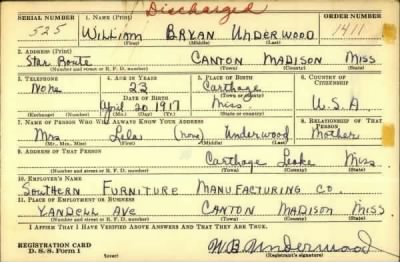 Discharged
SERIAL NUMBER 1. NAME (Print) ORDER NUMBER
525 WILLIAM BRYAN UNDERWOOD 1411
(First) (Middle) (Last)
2. ADDRESS (Print)
Star Route CANTON MADISON MISS
(Number and street or R. F. D. number) (Town) (County) (State)
3. TELEPHONE 4. AGE IN YEARS 5. PLACE OF BIRTH 6. COUNTRY OF CITIZENSHIP
None 23 Carthage
(Town or county)
DATE OF BIRTH
April 20 1917 Miss U.S.A
(Exchange) (Number) (Mo.) (Day) (Yr.) (State or country)
7. NAME OF PERSON WHO WILL ALWAYS KNOW YOUR ADDRESS 8. RELATIONSHIP OF THAT PERSON
Mrs Lela (none) Underwood Mother
(Mr., Mrs., Miss) (First) (Middle) (Last)
9. ADDRESS OF THAT PERSON
Carthage Leake Miss
(Number and street or R. F. D. number) (Town) (County) (State)
10. EMPLOYER'S NAME
SOUTHERN FURNITURE MANUFACTURING CO.
11. PLACE OF EMPLOYMENT OR BUSINESS
YANDELL AVE CANTON MADISON MISS
(Number and street or R. F. D. number) (Town) (County) (State)
I AFFIRM THAT I HAVE VERIFIED ABOVE ANSWERS AND THAT THEY ARE TRUE.
REGISTRATION CARD
D. S. S. Form 1 (over) W.B. Underwood
(Registrant's signature)